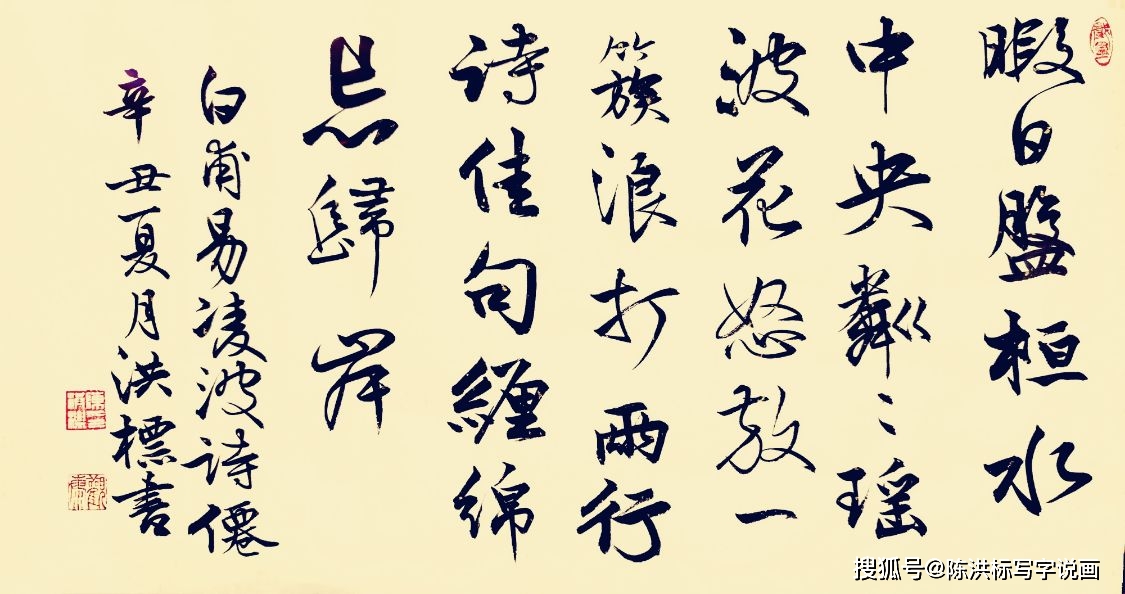 暇日盤桓水
中央粼々瑶
波花怒放一
簇浪打兩行
诗佳句纏綿
忘歸岸
白甫易凌波诗僊
辛丑夏月洪標書
搜狐号@陈洪标写字说画